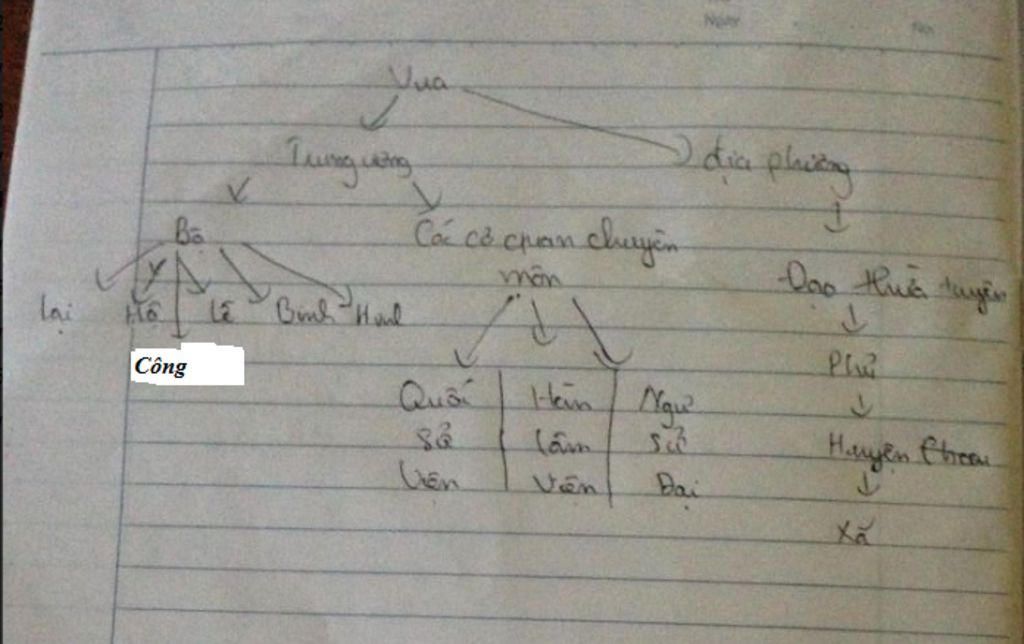 Ngày No.
Vua
Trung ương địa phương
Bộ Các cơ quan chuyên
môn Đạo thừa tuyên
lại Hộ Lễ Binh Hình
Công Phủ
Quốc Hàn Ngự
Sử lâm Sử Huyện Châu
Viện Viện Đại
Xã